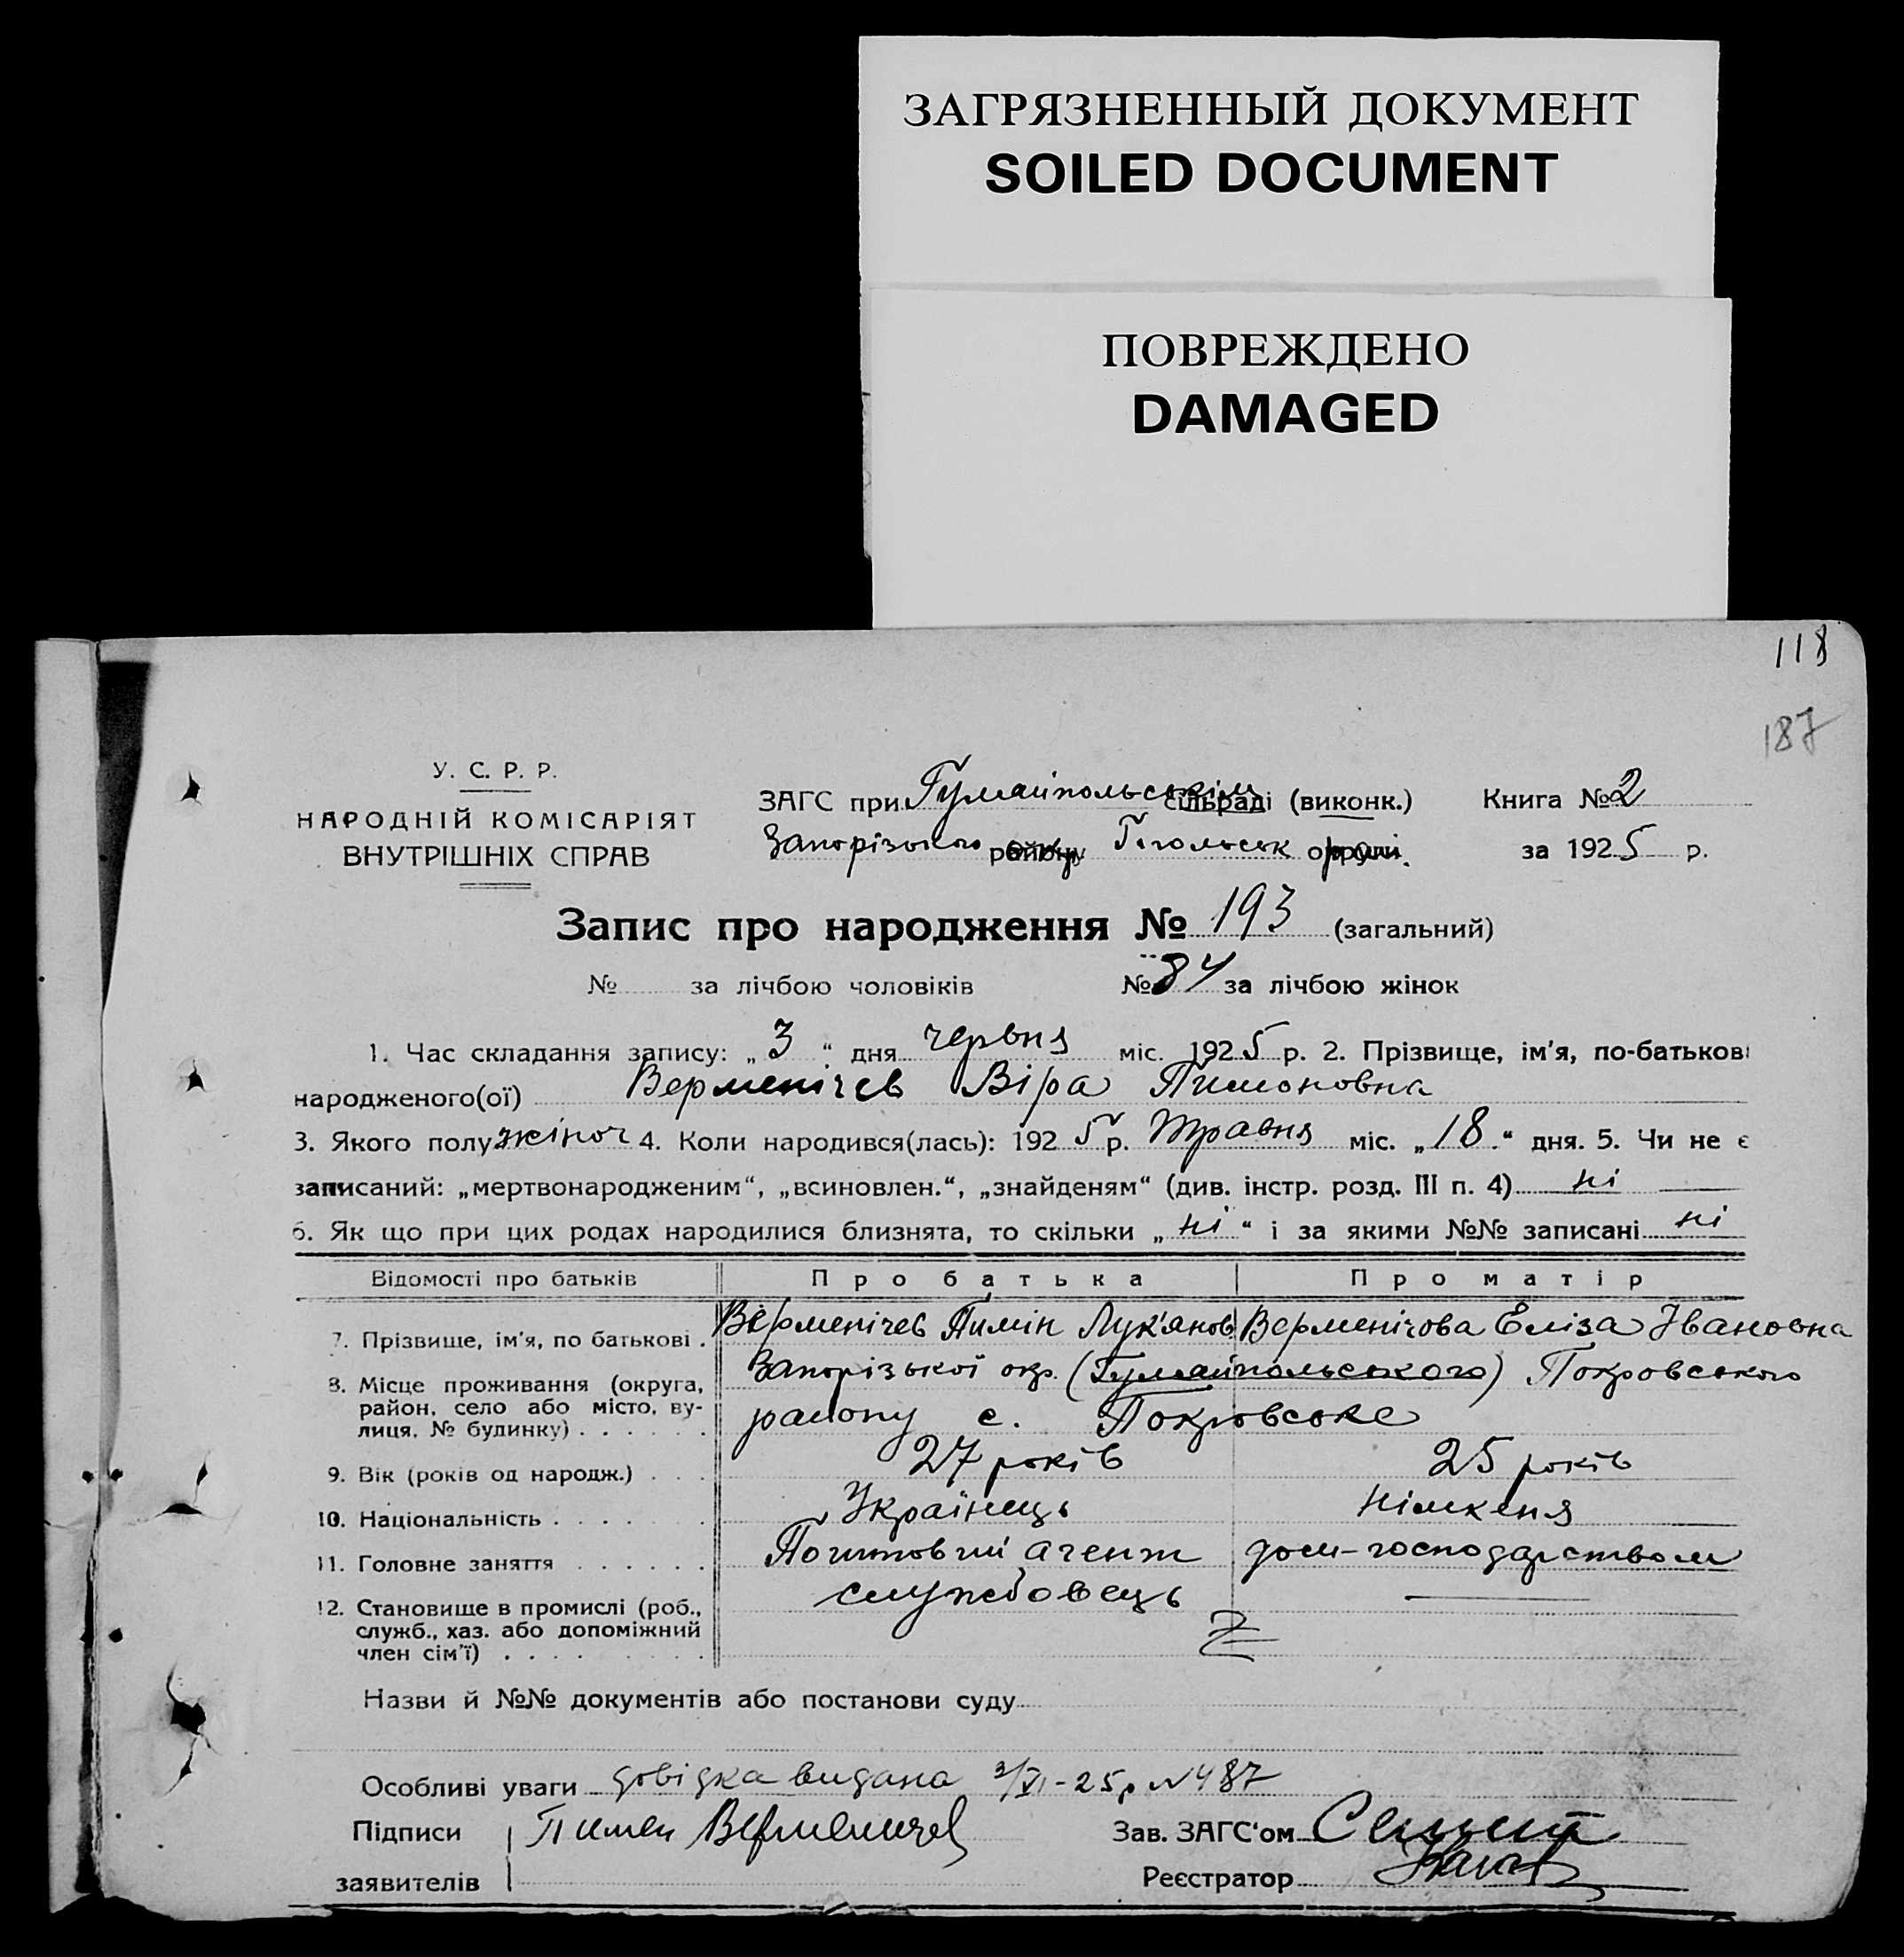 ЗАГРЯЗНЕННЫЙ ДОКУМЕНТ
SOILED DOCUMENT
ПОВРЕЖДЕНО
DAMAGED
118
187
У. С. Р. Р.
НАРОДНІЙ КОМІСАРІЯТ
ВНУТРІШНІХ СПРАВ
ЗАГС при Гумайпольськім сільраді (виконк.)
Запорізького району окр. Гогольськ округи
Книга № 2
за 1925 р.
Запис про народження № 193 (загальний)
№ за лічбою чоловіків № 84 за лічбою жінок
1. Час складання запису: „ 3 “ дня червня міс. 1925 р. 2. Прізвище, ім'я, по-батькові
народженого(ої) Верменічев Віра Пимоновна
3. Якого полу жіноч 4. Коли народився(лась): 1925 р. Травня міс. „ 18 “ дня. 5. Чи не є
записаний: „мертвонародженим“, „всиновлен.“, „знайденям“ (див. інстр. розд. III п. 4) ні
6. Як що при цих родах народилися близнята, то скільки „ ні “ і за якими №№ записані ні
Відомості про батьків Про батька Про матір
7. Прізвище, ім'я, по батькові . Верменічев Пимін Лук'янов Верменічова Еліза Івановна
8. Місце проживання (округа, район, село або місто, вулиця, № будинку) . . . . . .
Запорізької окр. (Гумайпольського) Покровського
району с. Покровське
9. Вік (років од народж.) . . . 27 років 25 років
10. Національність . . . . . . . Українець Німкеня
11. Головне заняття . . . . . . Почтовий агент дом-господарством
12. Становище в промислі (роб., служб., хаз. або допоміжний член сім'ї) . . . . . . . . . службовець
Назви й №№ документів або постанови суду
Особливі уваги довідка видана 3/VI-25р N 487
Підписи Пимен Верменичев
заявителів
Зав. ЗАГС'ом
Реєстратор